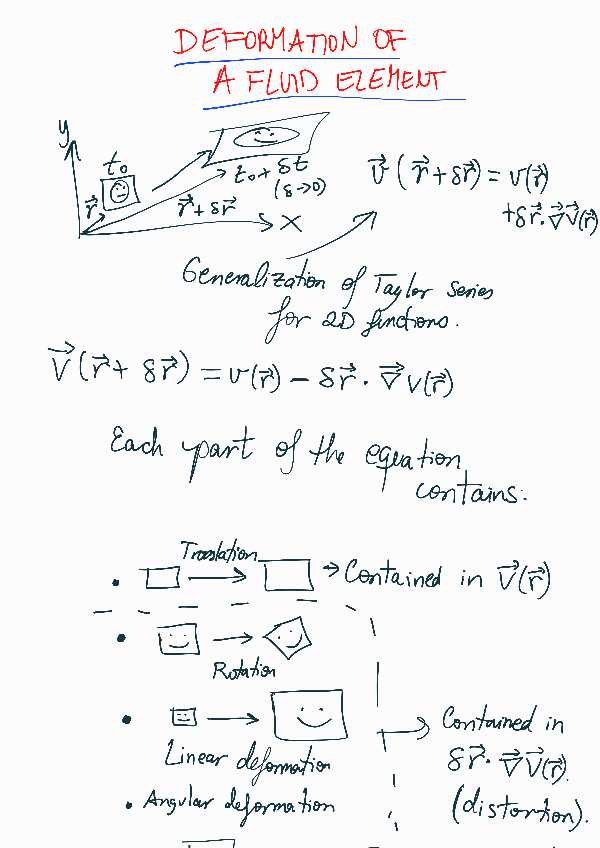 DEFORMATION OF
A FLUID ELEMENT
y
t₀
t₀ + δt
(δ→0)
r⃗
r⃗ + δr⃗
X
v⃗ (r⃗ + δr⃗) = v(r⃗)
+ δr⃗ · ∇⃗v⃗(r⃗)
Generalization of Taylor series
for 2D finctions.
V⃗ (r⃗ + δr⃗) = v(r⃗) − δr⃗ · ∇⃗ v(r⃗)
Each part of the equation
contains:
Translation
• → → Contained in V⃗(r⃗)
• →
Rotation
• →
Linear deformation
Contained in
δr⃗ · ∇⃗V⃗(r⃗).
(distortion).
• Angular deformation